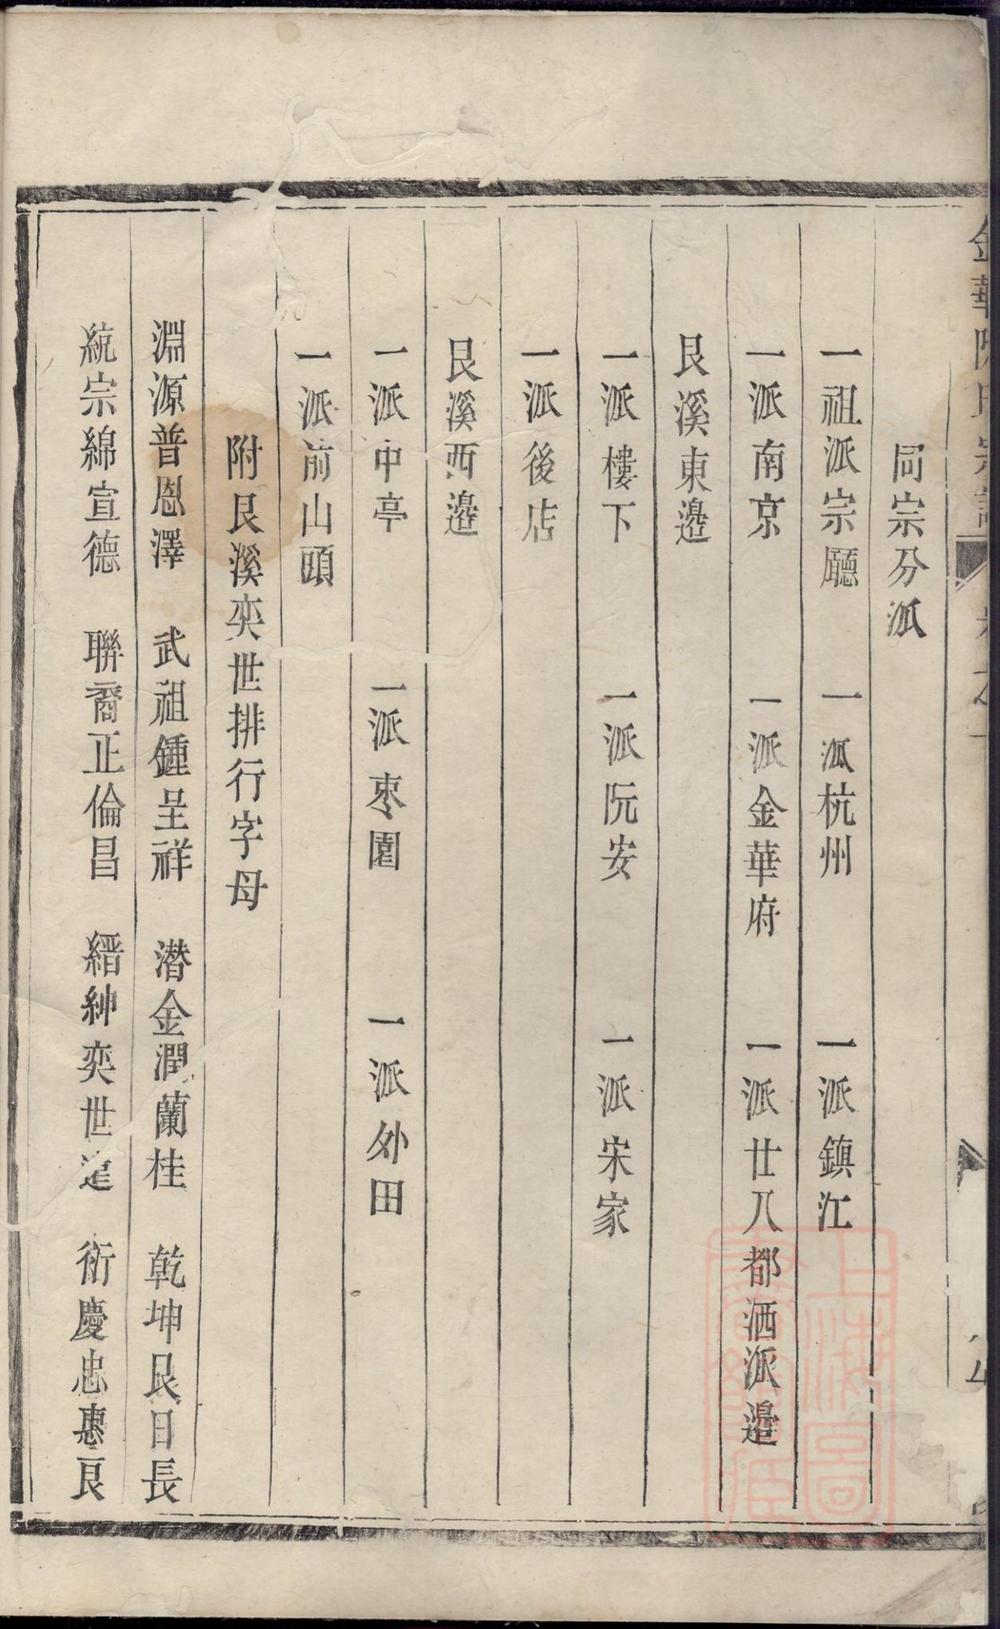 金華陳氏宗譜
同宗分派
一祖派宗廳 一派杭州 一派鎮江
一派南京 一派金華府 一派廿八都洒派邉
艮溪東邉
一派樓下 一派阮安 一派宋家
一派後店
艮溪西邉
一派中亭 一派枣園 一派外田
一派前山頭
附艮溪奕世排行字母
淵源普恩澤 武祖鍾呈祥 潛金潤蘭桂 乾坤艮日長
統宗綿宣德 聯裔正倫昌 縉紳奕世遠 衍慶忠惠良
上海圖書館藏